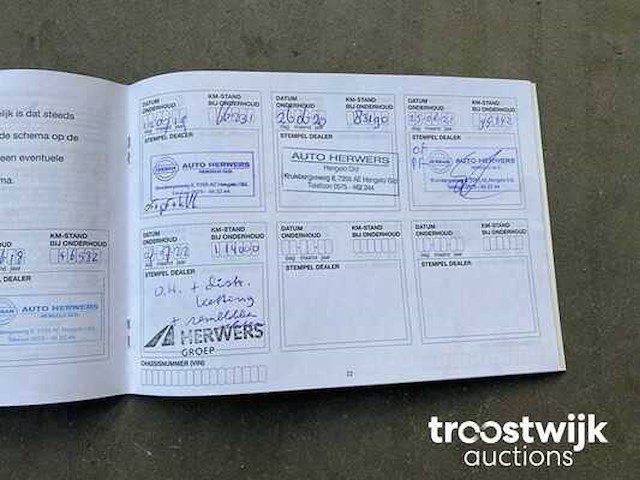 lijk is dat steeds
de schema op de
een eventuele
ma.
KM-STAND
BIJ ONDERHOUD
46582
maand jaar
DEALER
AUTO HERWERS
HENGELO GLD.
DATUM
ONDERHOUD
KM-STAND
BIJ ONDERHOUD
dag maand jaar
STEMPEL DEALER
NISSAN
AUTO HERWERS
Kruisbergseweg 8, 7255 AE Hengelo Gld.
Telefoon 0575 - 46 22 44
DATUM
ONDERHOUD
KM-STAND
BIJ ONDERHOUD
260620
83190
dag maand jaar
STEMPEL DEALER
AUTO HERWERS
Hengelo Gld
Kruisbergseweg 8, 7255 AE Hengelo Gld
Telefoon 0575 - 462 244
DATUM
ONDERHOUD
KM-STAND
BIJ ONDERHOUD
dag maand jaar
STEMPEL DEALER
NISSAN
AUTO HERWERS
DATUM
ONDERHOUD
KM-STAND
BIJ ONDERHOUD
114000
dag maand jaar
STEMPEL DEALER
O.H. + Distr.
ketting
+ remblokken
HERWERS
GROEP
DATUM
ONDERHOUD
KM-STAND
BIJ ONDERHOUD
dag maand jaar
STEMPEL DEALER
DATUM
ONDERHOUD
KM-STAND
BIJ ONDERHOUD
dag maand jaar
STEMPEL DEALER
CHASSISNUMMER (VIN)
23
troostwijk
auctions